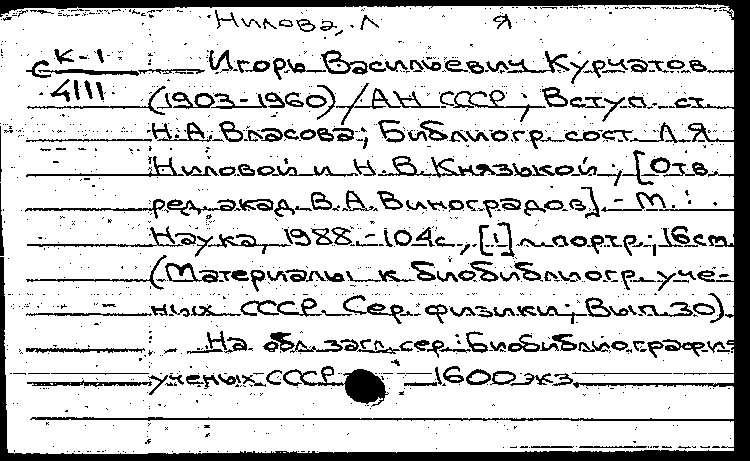 Нилова, Л Я
С К-1 Игорь Васильевич Курчатов
4111 (1903-1960) / АН СССР ; Вступ. ст.
Н.А. Власова; Библиогр. сост. Л.Я.
Ниловой и Н.В. Князькой ; [Отв.
ред. акад. В.А. Виноградов]. - М. :
Наука, 1988. - 104с., [1] л. портр.; 16см.
(Материалы к биобиблиогр. уче-
ных СССР. Сер. физики; Вып. 30).
На обл. загл. сер.: Биобиблиография
ученых СССР 1600 экз.